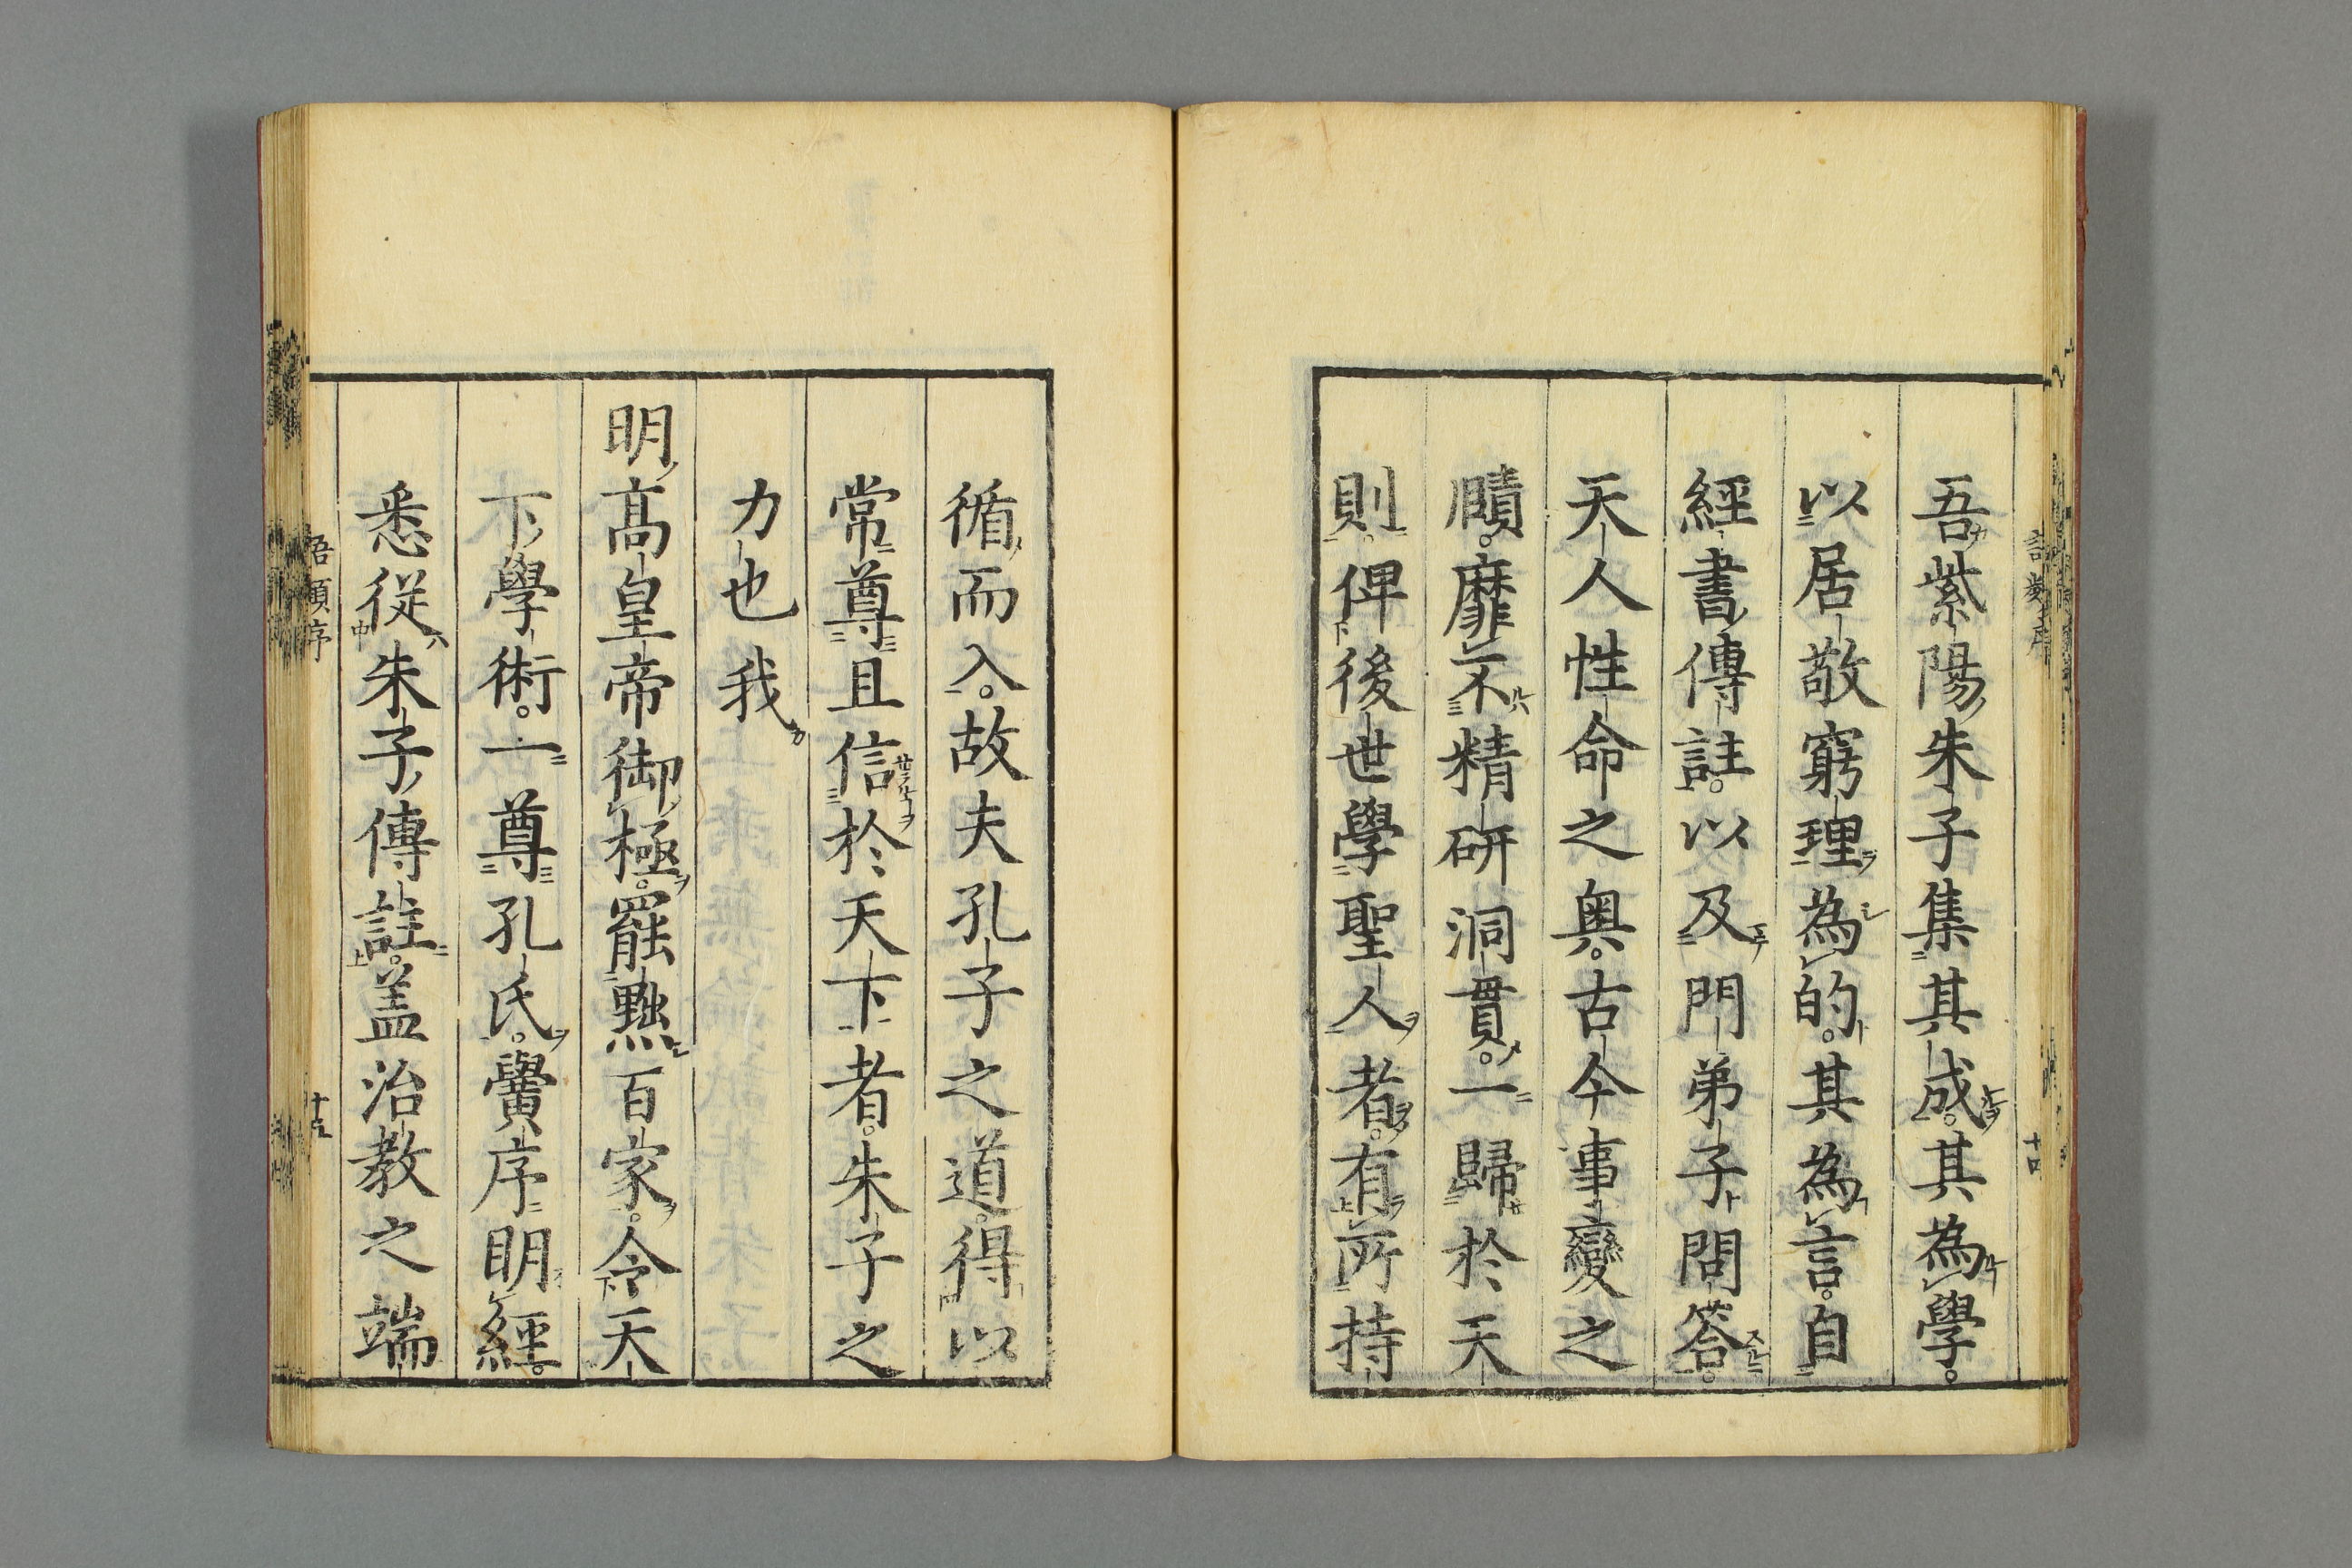 吾紫陽朱子集其成。其為學。
以居敬窮理為的。其為言。自
經書傳註。以及門弟子問答。
天人性命之奥。古今事變之
賾。靡不精研洞貫。一歸於天
則。俾後世學聖人者。有所持
循而入。故夫孔子之道。得以
常尊且信於天下者。朱子之
力也我
明高皇帝御極。罷黜百家。令天
下學術。一尊孔氏。黌序明經。
悉從朱子傳註。盖治教之端